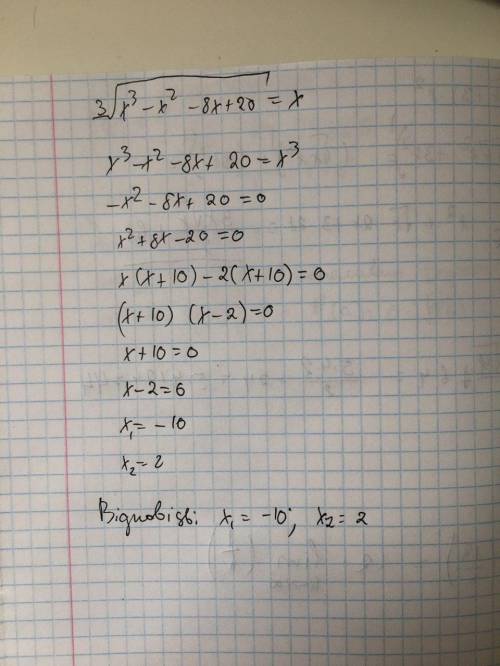 ∛(x³ - x² - 8x + 20) = x
x³ - x² - 8x + 20 = x³
-x² - 8x + 20 = 0
x² + 8x - 20 = 0
x(x + 10) - 2(x + 10) = 0
(x + 10) (x - 2) = 0
x + 10 = 0
x - 2 = 0
x₁ = -10
x₂ = 2
Відповідь: x₁ = -10; x₂ = 2